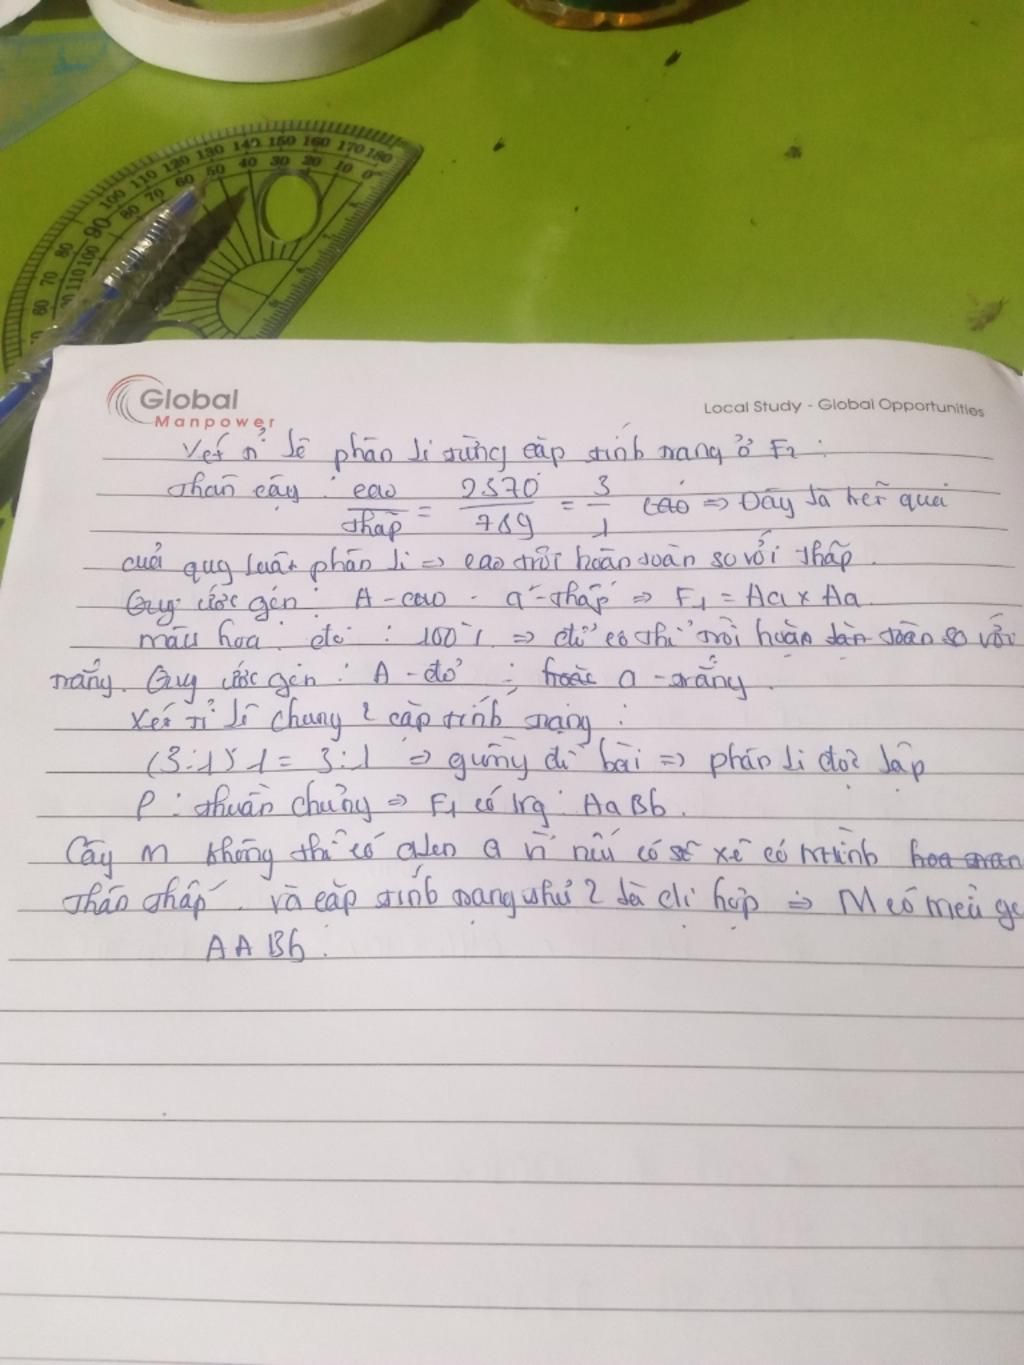 140 150 160 170 180
100 110 120 130
50 40 30 20 10 0
Global
Manpower
Local Study - Global Opportunities
Xét tỉ lệ phân li từng cặp tính trạng ở F2 :
Thân cây : cao / thấp = 2370 / 789 = 3 / 1 cao => Đây là kết quả
của quy luật phân li => cao trội hoàn toàn so với thấp.
Quy ước gen : A - cao . a - thấp => F1 = Aa x Aa
màu hoa : đỏ : 100% => đỏ có thể trội hoàn toàn so với
trắng. Quy ước gen : A - đỏ ; hoặc a - trắng.
Xét tỉ lệ chung 2 cặp tính trạng :
(3:1) 1 = 3:1 => giống đề bài => phân li độc lập
P : thuần chủng => F1 có kg : AaBb.
Cây M không thể có alen a vì nếu có sẽ xh có KH
thân thấp và cặp tính trạng thứ 2 là dị hợp => M có
AABb.